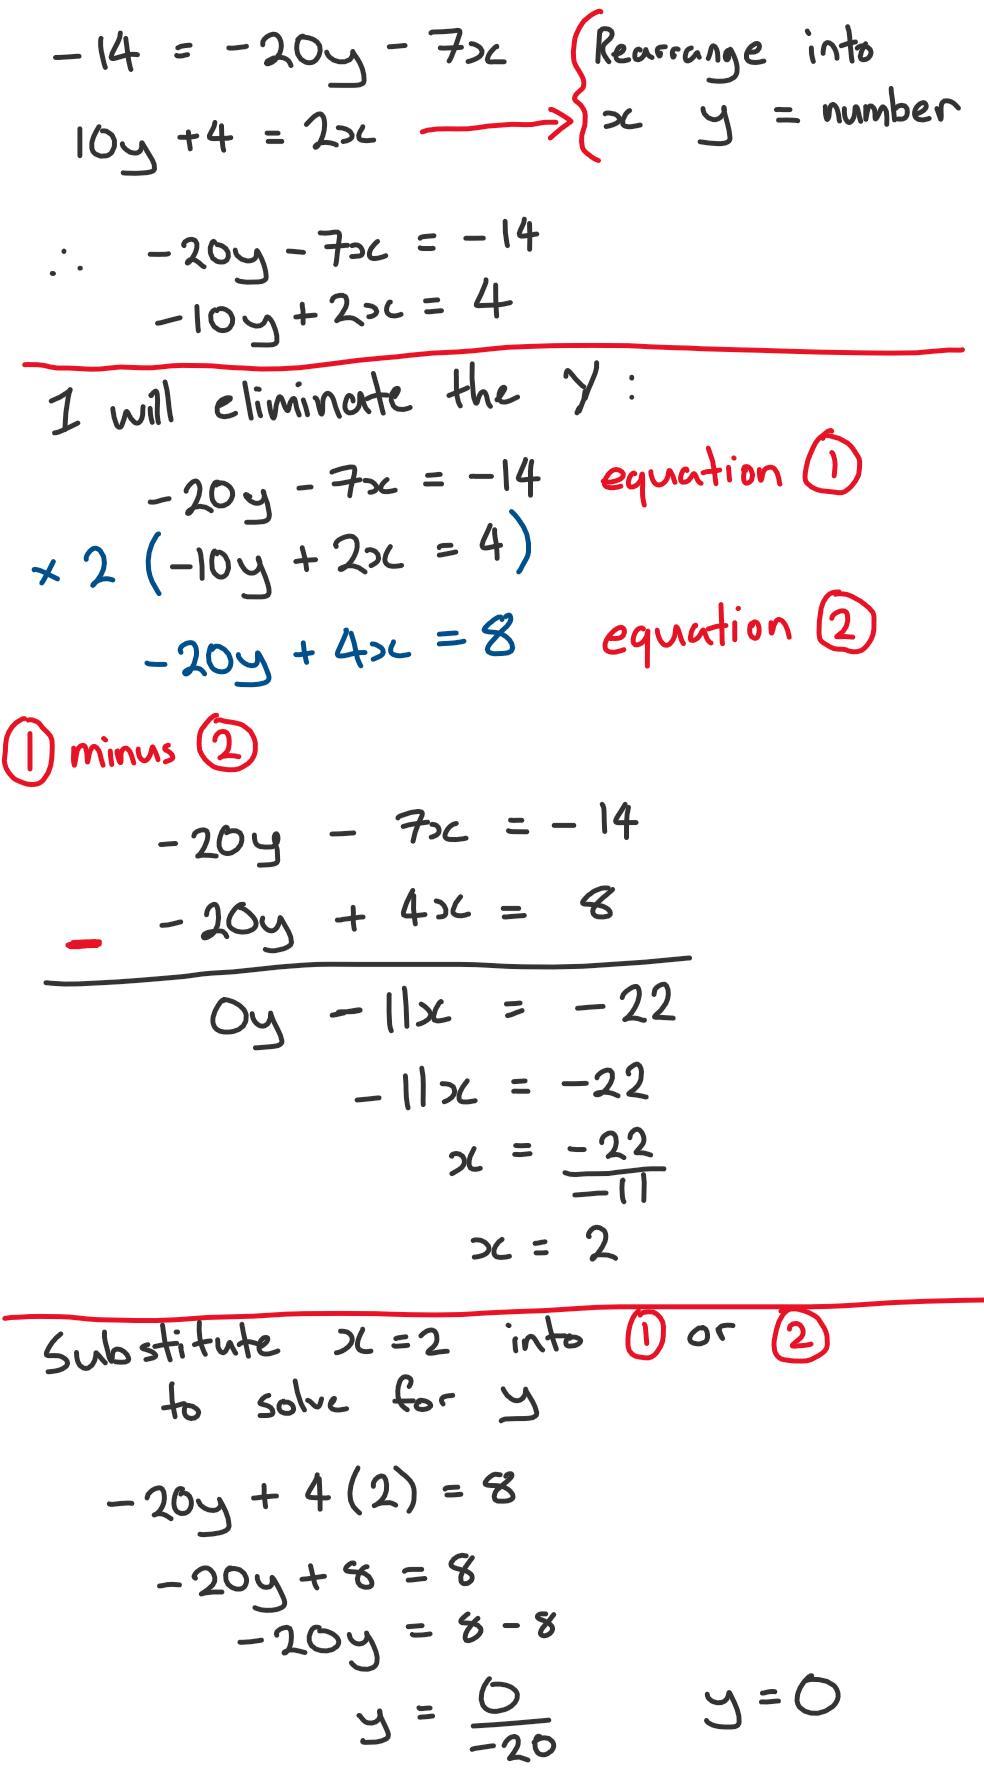 -14 = -20y - 7x
Rearrange into
10y + 4 = 2x
x y = number
∴ -20y - 7x = -14
-10y + 2x = 4
I will eliminate the Y :
-20y - 7x = -14 equation ①
× 2 (-10y + 2x = 4)
-20y + 4x = 8 equation ②
① minus ②
-20y - 7x = -14
- -20y + 4x = 8
0y - 11x = -22
-11x = -22
x = -22
-11
x = 2
Substitute x = 2 into ① or ②
to solve for y
-20y + 4(2) = 8
-20y + 8 = 8
-20y = 8 - 8
y = 0 y = 0
-20